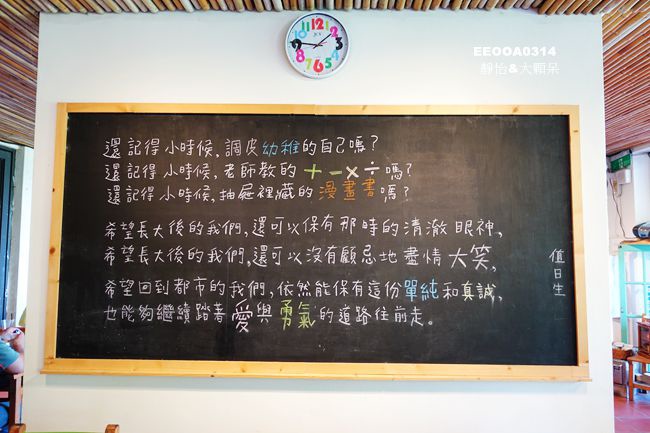 EEOOA0314
靜怡&大顆呆
12
1
2
3
4
5
6
7
8
9
10
11
還記得小時候,調皮幼稚的自己嗎?
還記得小時候,老師教的+-×÷嗎?
還記得小時候,抽屜裡藏的漫畫書嗎?
希望長大後的我們,還可以保有那時的清澈眼神,
希望長大後的我們,還可以沒有顧忌地盡情大笑,
希望回到都市的我們,依然能保有這份單純和真誠,
也能夠繼續踏著愛與勇氣的道路往前走。
值日生